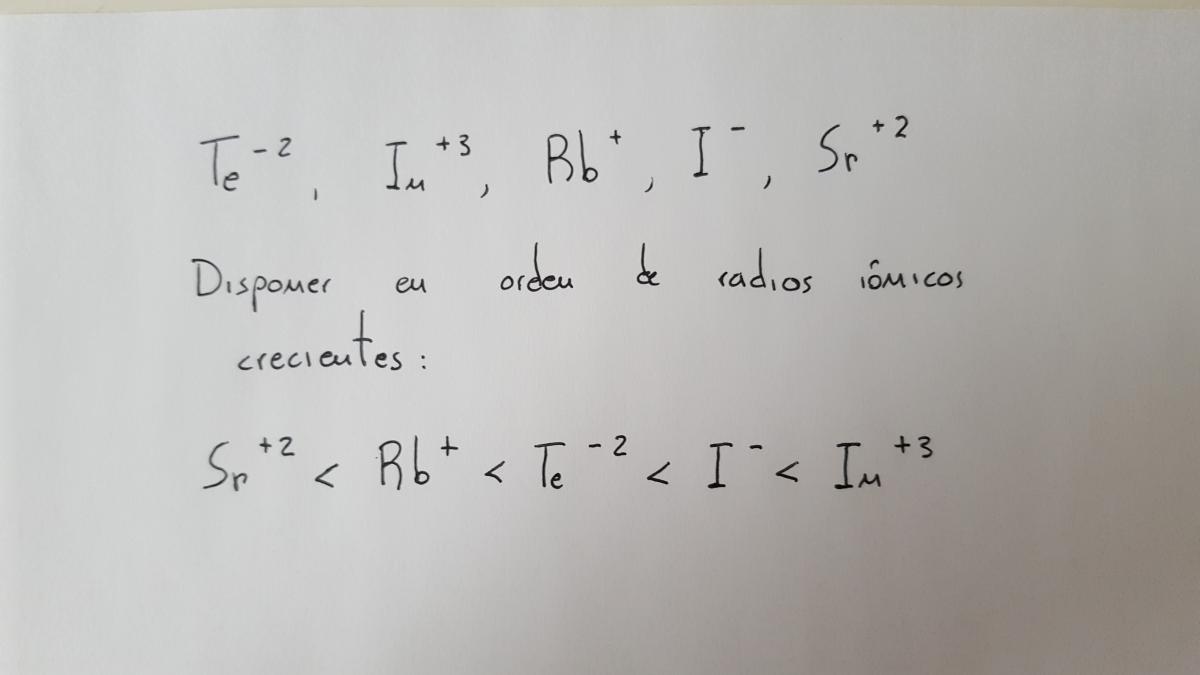 Te⁻², In⁺³, Rb⁺, I⁻, Sr⁺²
Disponer en orden de radios iônicos
crecientes:
Sr⁺² < Rb⁺ < Te⁻² < I⁻ < In⁺³